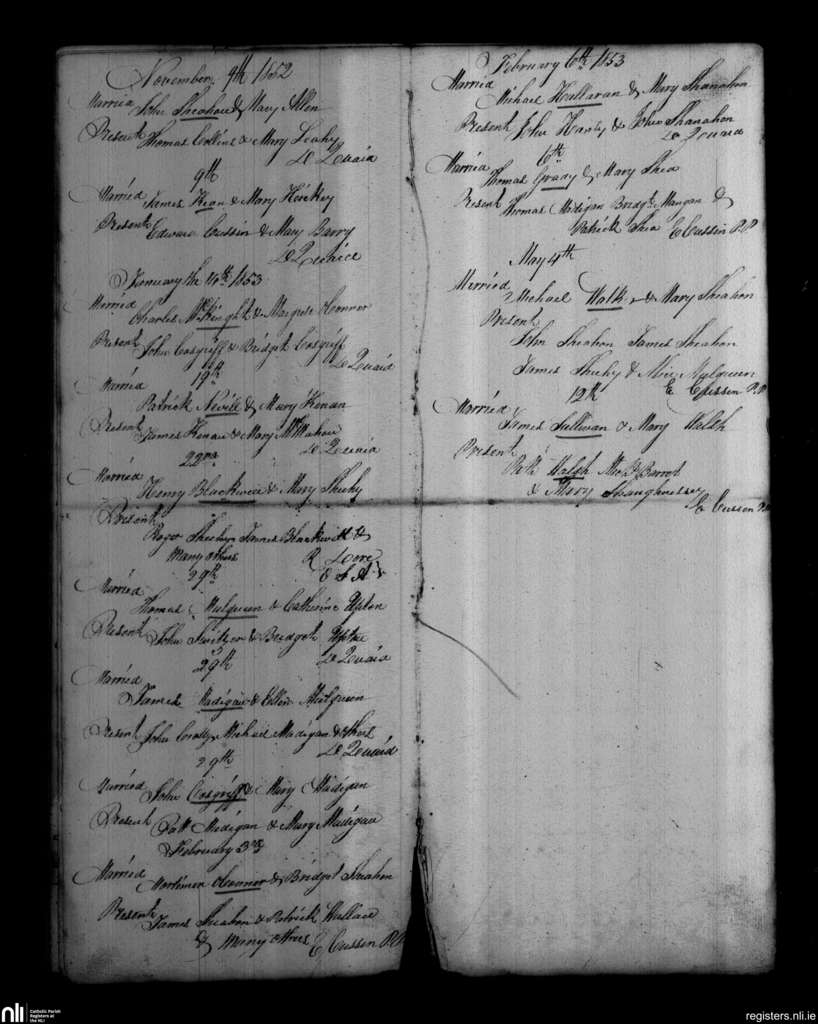 November 9th 1852
Married John Sheahan & Mary Allen
Present Thomas Collins & Mary Leahy
D Quaid
9th
Married James Kean & Mary Hickey
Present Edward Cussin & Mary Barry
D Quaid
January the 14th 1853
Married Charles McKnight & Margret OConnor
Present John Cosgriff & Bridget Cosgriff
D Quaid
19th
Married
Patrick Nevill & Mary Kenan
Present James Kenan & Mary McMahon
D Quaid
22nd
Married
Henry Blackwell & Mary Sheehy
Present
Roger Sheehy James Blackwell &
Many others R
29th
Married
Thomas Mulqueen & Catherine Upton
Present John Switzer & Bridget Upton
D Quaid
29th
Married
James Madigan & Ellen Mulqueen
Present John Michael Madigan & others
D Quaid
29th
Married John Cosgriff & Mary Madigan
Present Patt Madigan & Mary Madigan
February 3rd
Married Mortimer OConnor & Bridget Sheahan
Present James Sheahan & Patrick Wallace
& Many others E Cussen P.P
February 6th 1853
Married
Michael Hallaran & Mary Shanahon
Present John & John Shanahon
D Quaid
6th
Married Thomas Grady & Mary Shea
Present Thomas Madigan Bridgt Mangan &
Patrick Shea E Cussin P.P
May 4th
Married Michael & Mary Sheahon
Present
John Sheahon James Sheahon
James Sheehy & Mulqueen
E Cussen P.P
12th
Married James Sullivan & Mary Walsh
Present
Patt Walsh
& Mary Shaughnessy
E Cussen P.P
nli
Catholic Parish
Registers at
the NLI
registers.nli.ie